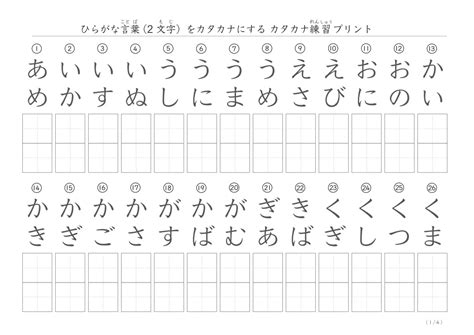 ひらがな言葉(2文字)をカタカナにする カタカナ練習プリント
ことば もじ れんしゅう
① あめ
② いか
③ いす
④ いぬ
⑤ うし
⑥ うに
⑦ うま
⑧ うめ
⑨ えさ
⑩ えび
⑪ おに
⑫ おの
⑬ かい
⑭ かき
⑮ かぎ
⑯ かご
⑰ かさ
⑱ がす
⑲ かば
⑳ がむ
㉑ ぎあ
㉒ きば
㉓ くぎ
㉔ くし
㉕ くつ
㉖ くま
(1/4)